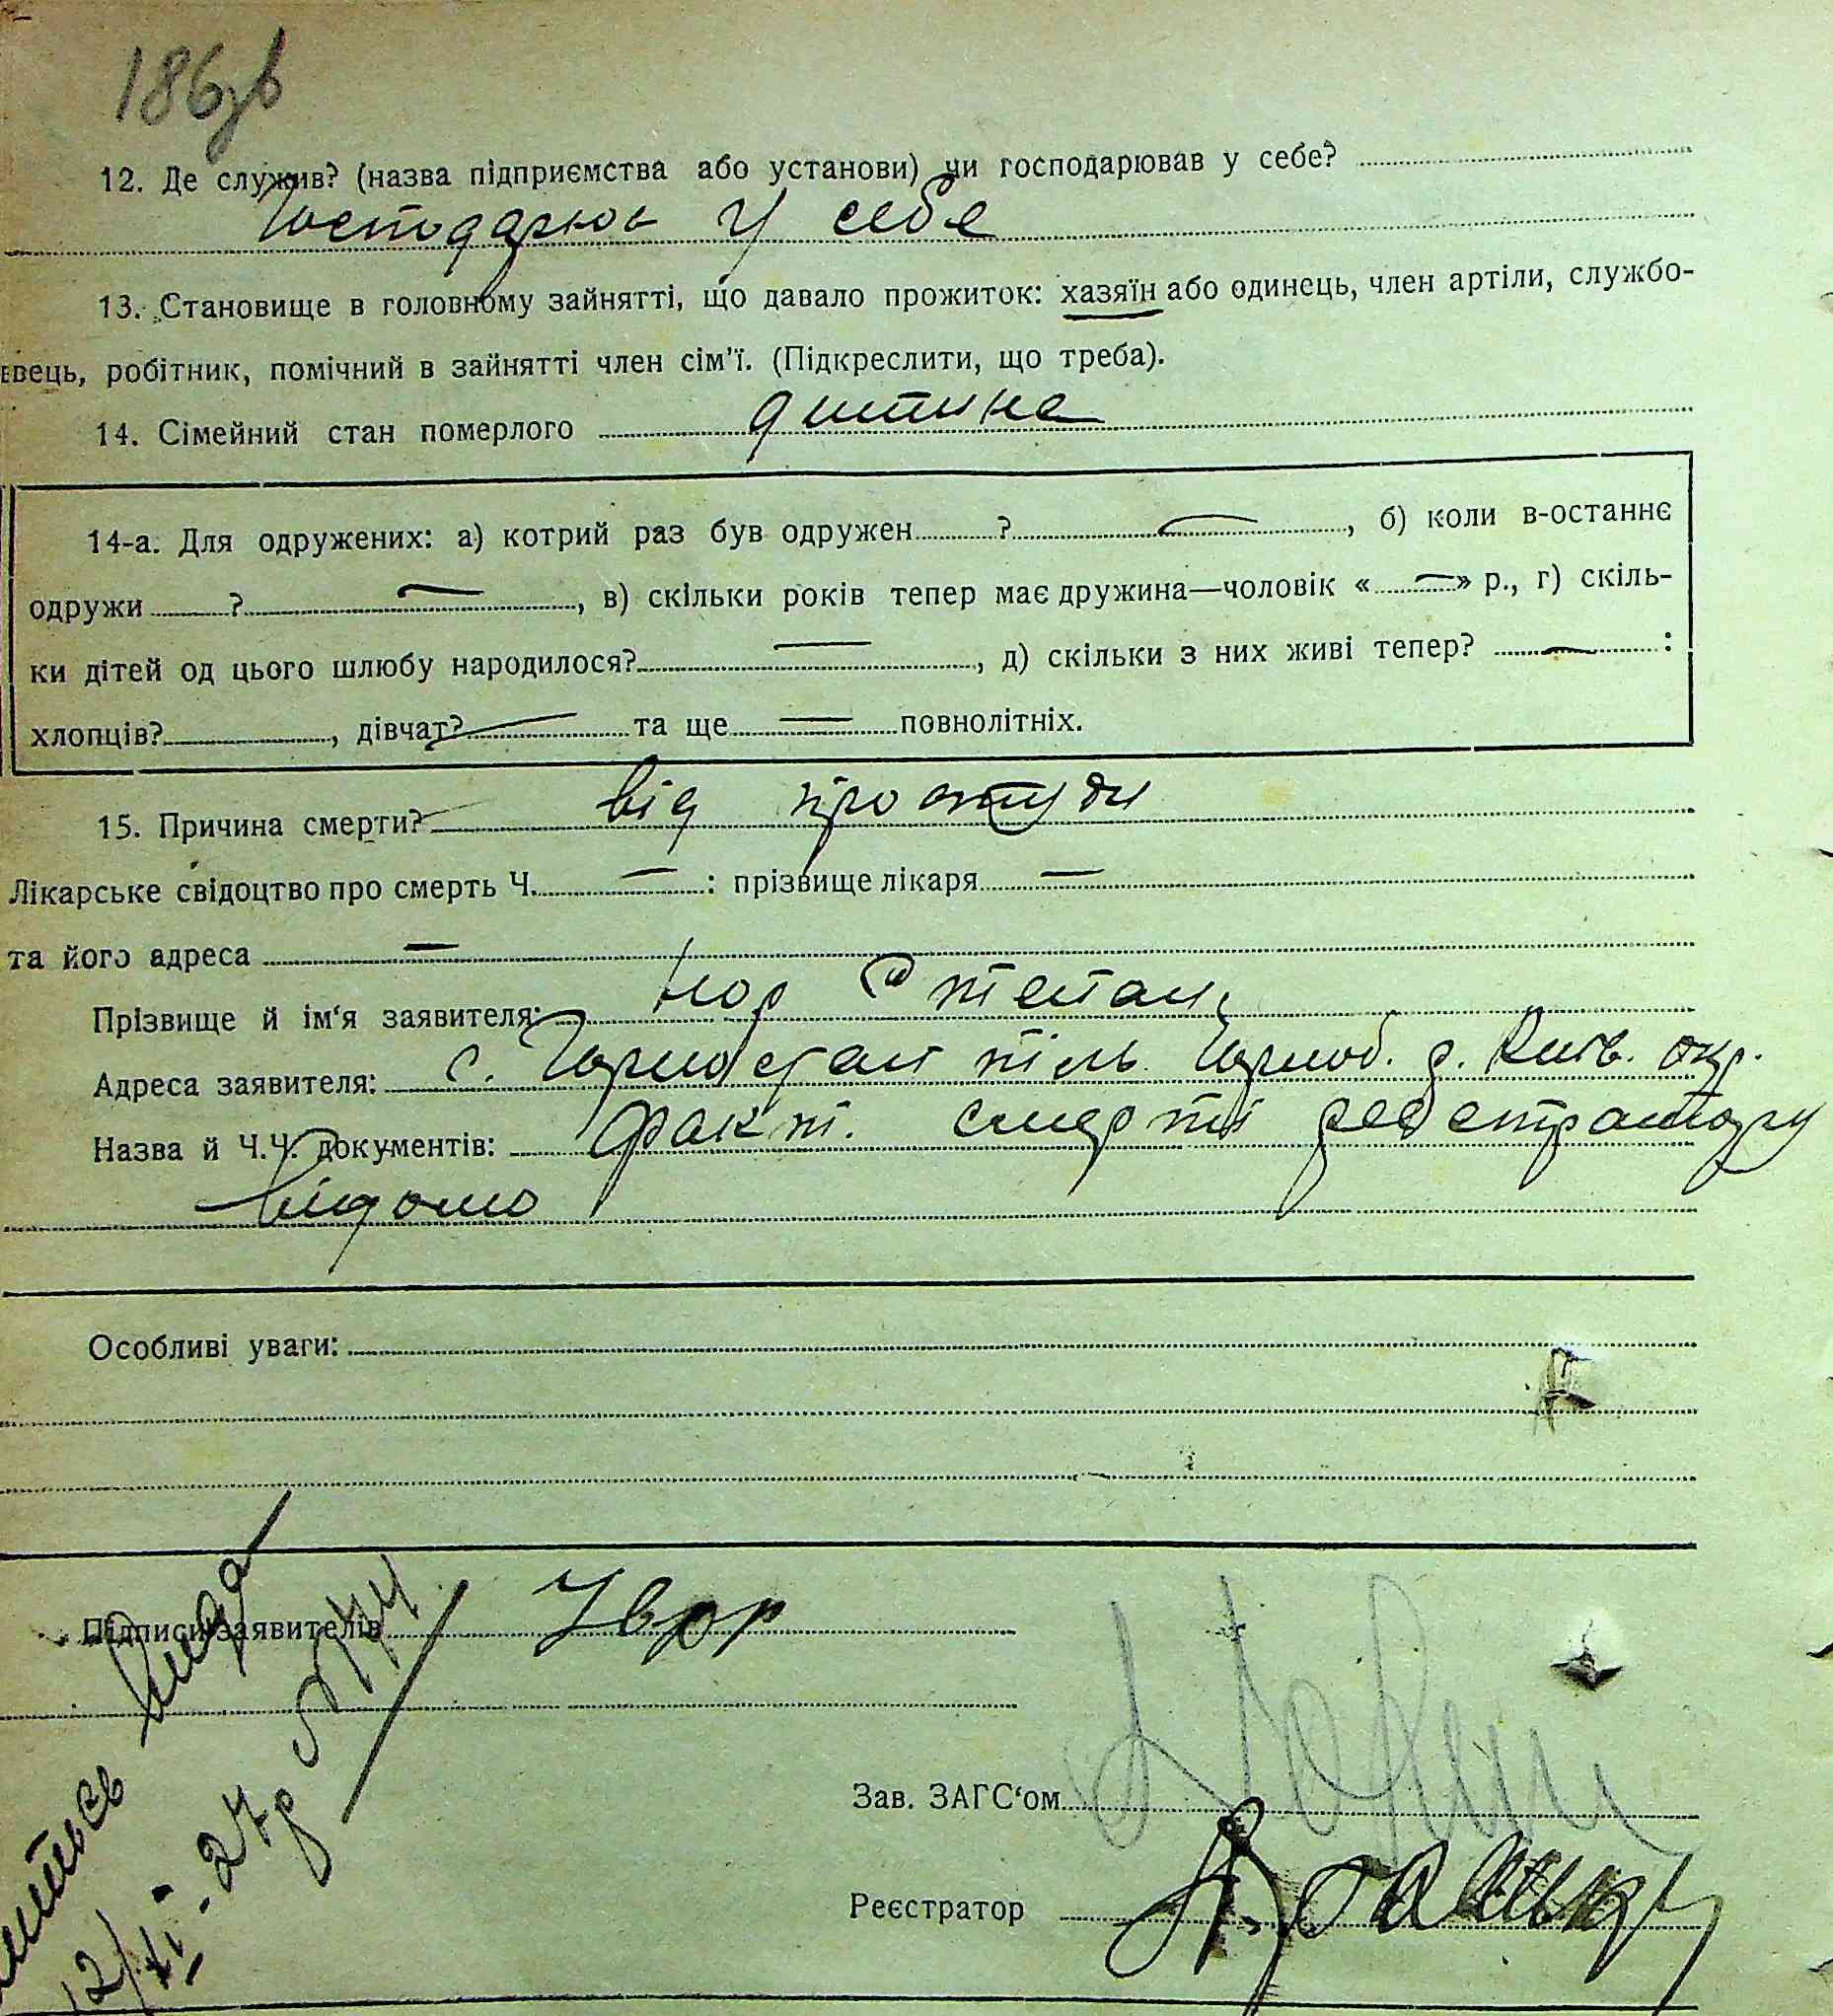 186зв
12. Де служив? (назва підприємства або установи) чи господарював у себе?
у себе
13. Становище в головному зайнятті, що давало прожиток: хазяїн або одинець, член артіли, службо-
вець, робітник, помічний в зайнятті член сім’ї. (Підкреслити, що треба).
14. Сімейний стан померлого дитина
14-а. Для одружених: а) котрий раз був одружен ? —, б) коли в-останнє
одружи ? —, в) скільки років тепер має дружина—чоловік «—» р., г) скіль-
ки дітей од цього шлюбу народилося? —, д) скільки з них живі тепер? — :
хлопців? , дівчат? — та ще — повнолітніх.
15. Причина смерти? від простуди
Лікарське свідоцтво про смерть Ч. — : прізвище лікаря —
та його адреса —
Прізвище й ім‘я заявителя: Степан
Адреса заявителя: с. Горностайпіль Горност. р. Київ. окр.
Назва й Ч.Ч. документів: факт. смерті реєстратору
відомо
Особливі уваги:
Підписи заявителів
Зав. ЗАГС‘ом
Реєстратор
12/VI-27р